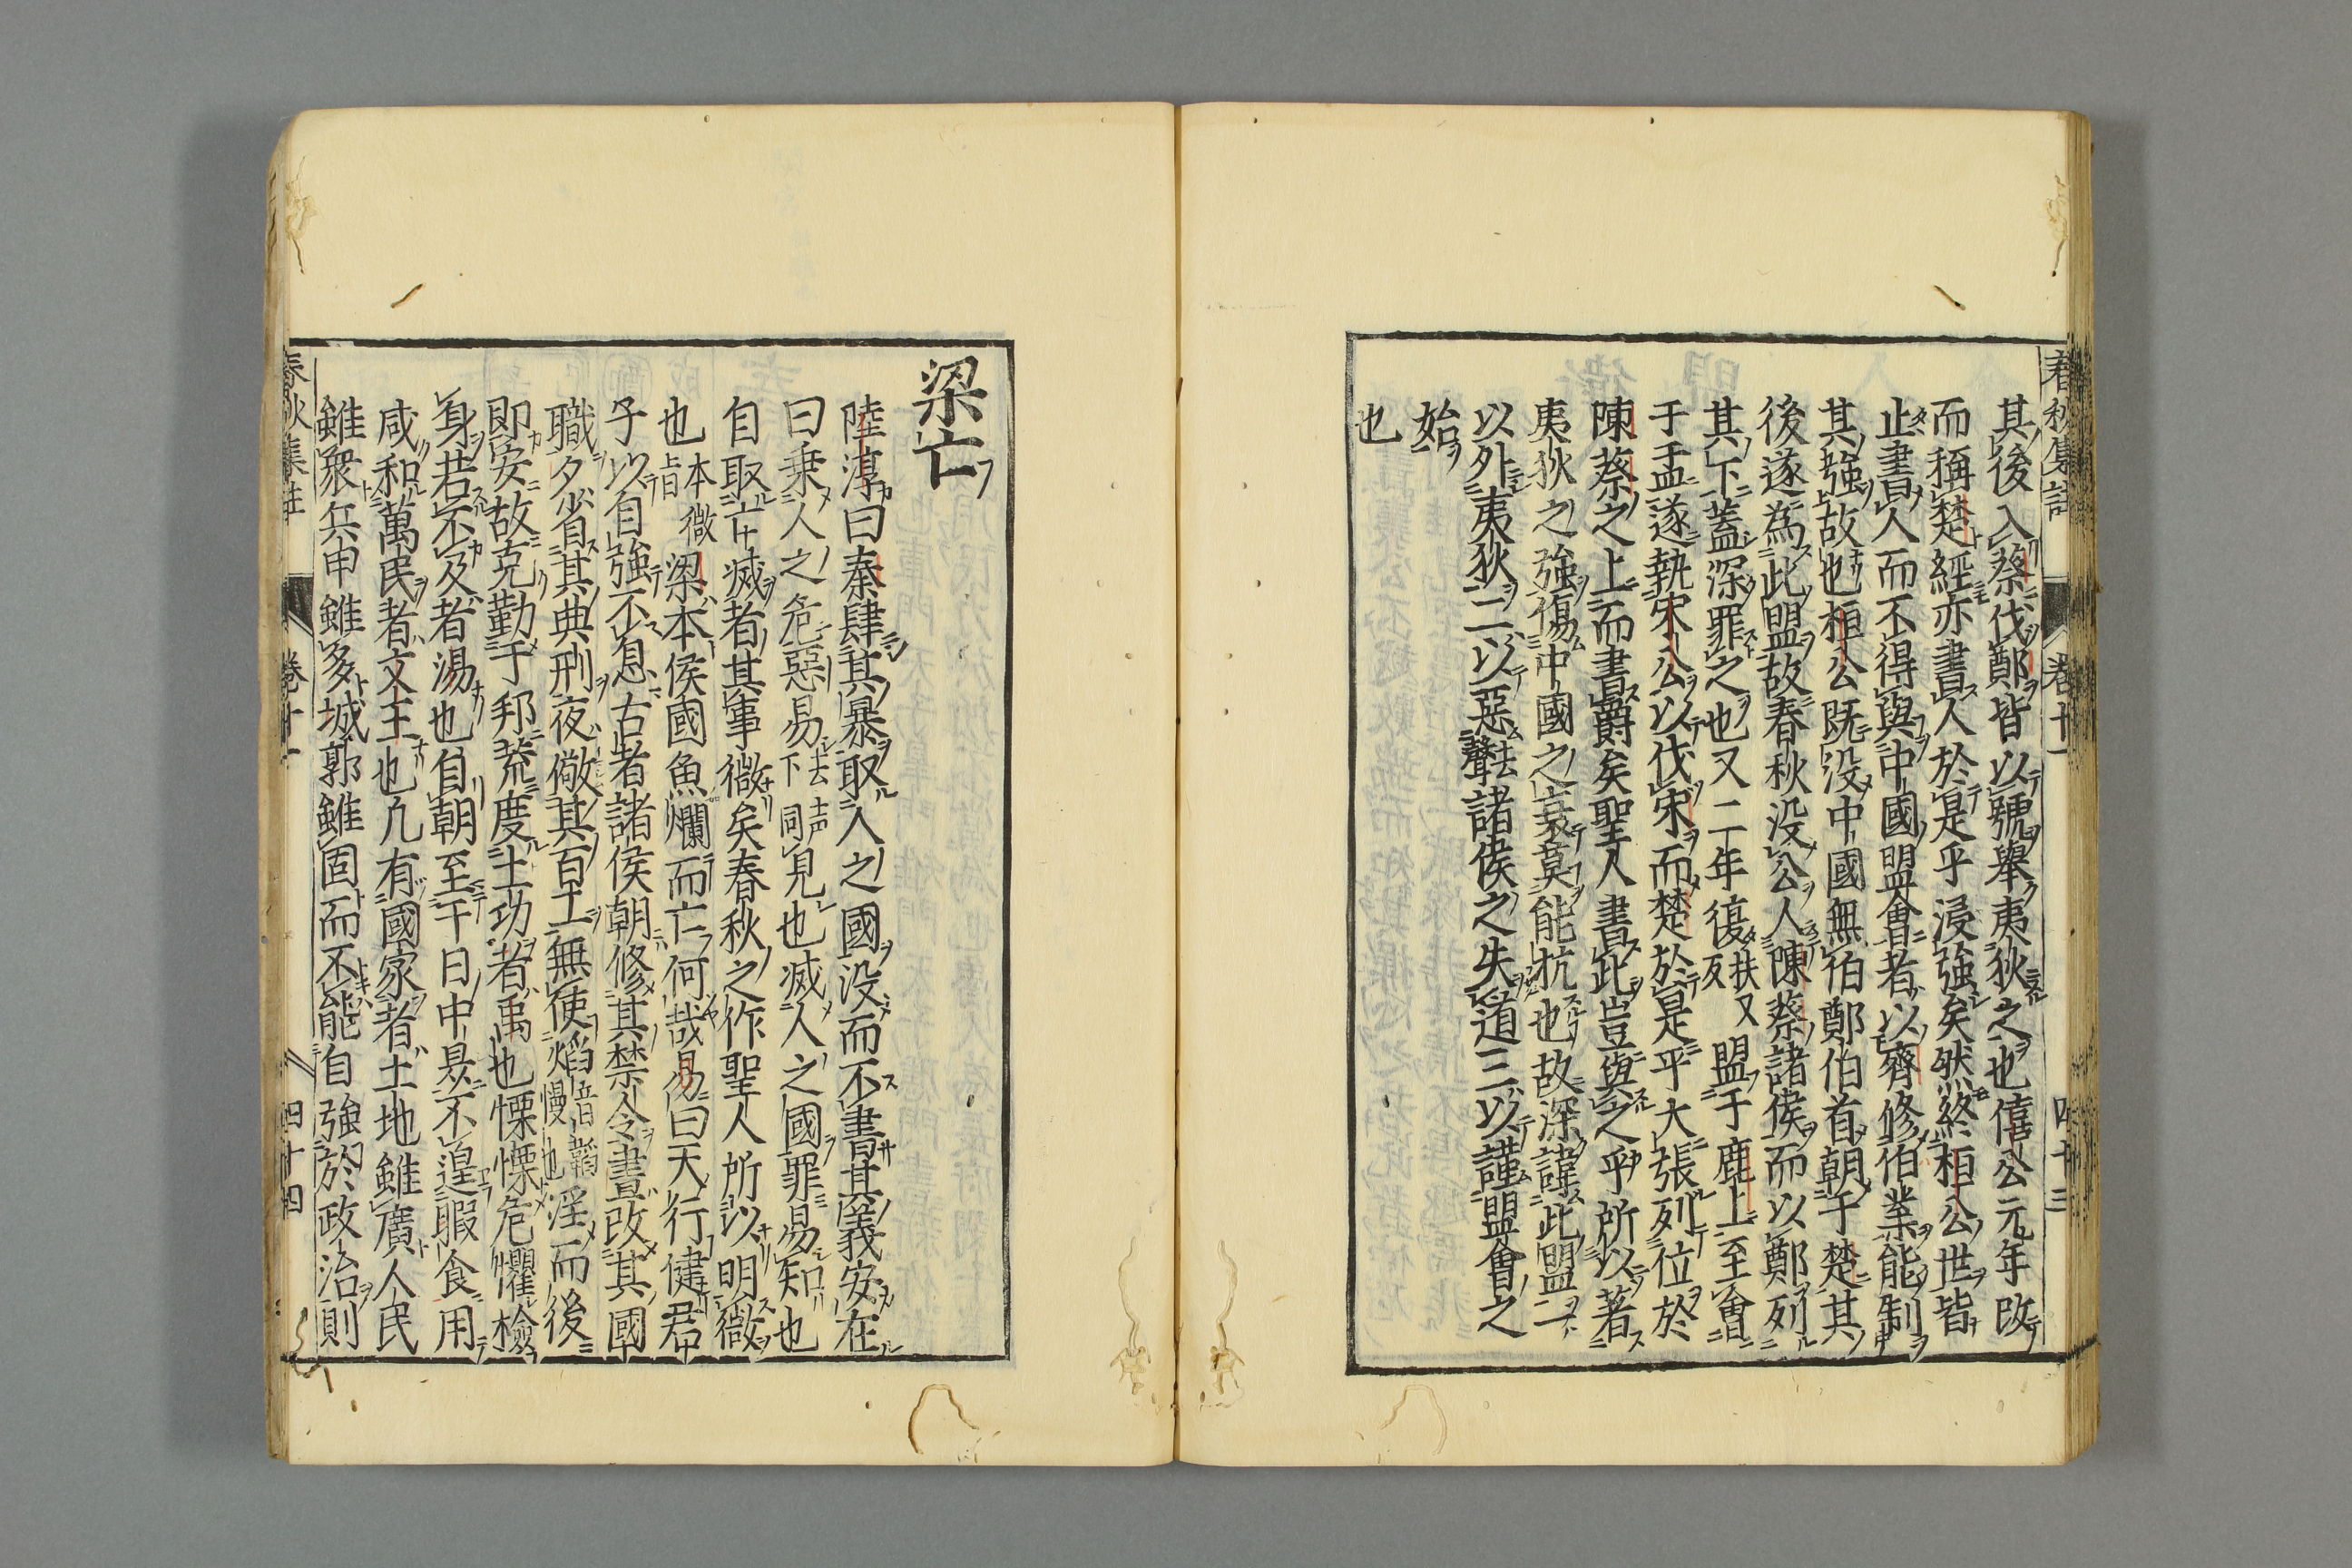 春秋集註 卷十一 四十三
其後入蔡伐鄭皆以號舉夷狄之也僖公元年改
而稱楚經亦書人於是乎浸強矣然終桓公世皆
止書人而不得與中國盟會者以齊修伯業能制
其強故也桓公既没中國無伯鄭伯首朝于楚其
後遂為此盟故春秋没公人陳蔡諸侯而以鄭列
其下蓋深罪之也又二年復扶又反盟于鹿上至會
于盂遂執宋公以伐宋而楚於是乎大張列位於
陳蔡之上而書爵矣聖人書此豈與之乎所以著
夷狄之強傷中國之衰莫能抗也故深諱此盟一
以外夷狄二以惡去聲諸侯之失道三以謹盟會之
始
也
梁亡
陸淳曰秦肆其暴取人之國没而不書其義安在
曰乗人之危惡易去声下同見也滅人之國罪易知也
自取亡滅者其事微矣春秋之作聖人所以明微
也本上曰微梁本侯國魚爛而亡何哉易曰天行健君
子以自強不息古者諸侯朝修其禁令晝改其國
職夕省其典刑夜儆其百工無使慆音韜慢也淫而後
即安故克勤于邦荒度土功者禹也慄慄危懼檢
身若不及者湯也自朝至于日中昃不遑暇食用
咸和萬民者文王也凡有國家者土地雖廣人民
雖衆兵甲雖多城郭雖固而不能自強於政治則
春秋集註 卷十一 四十四